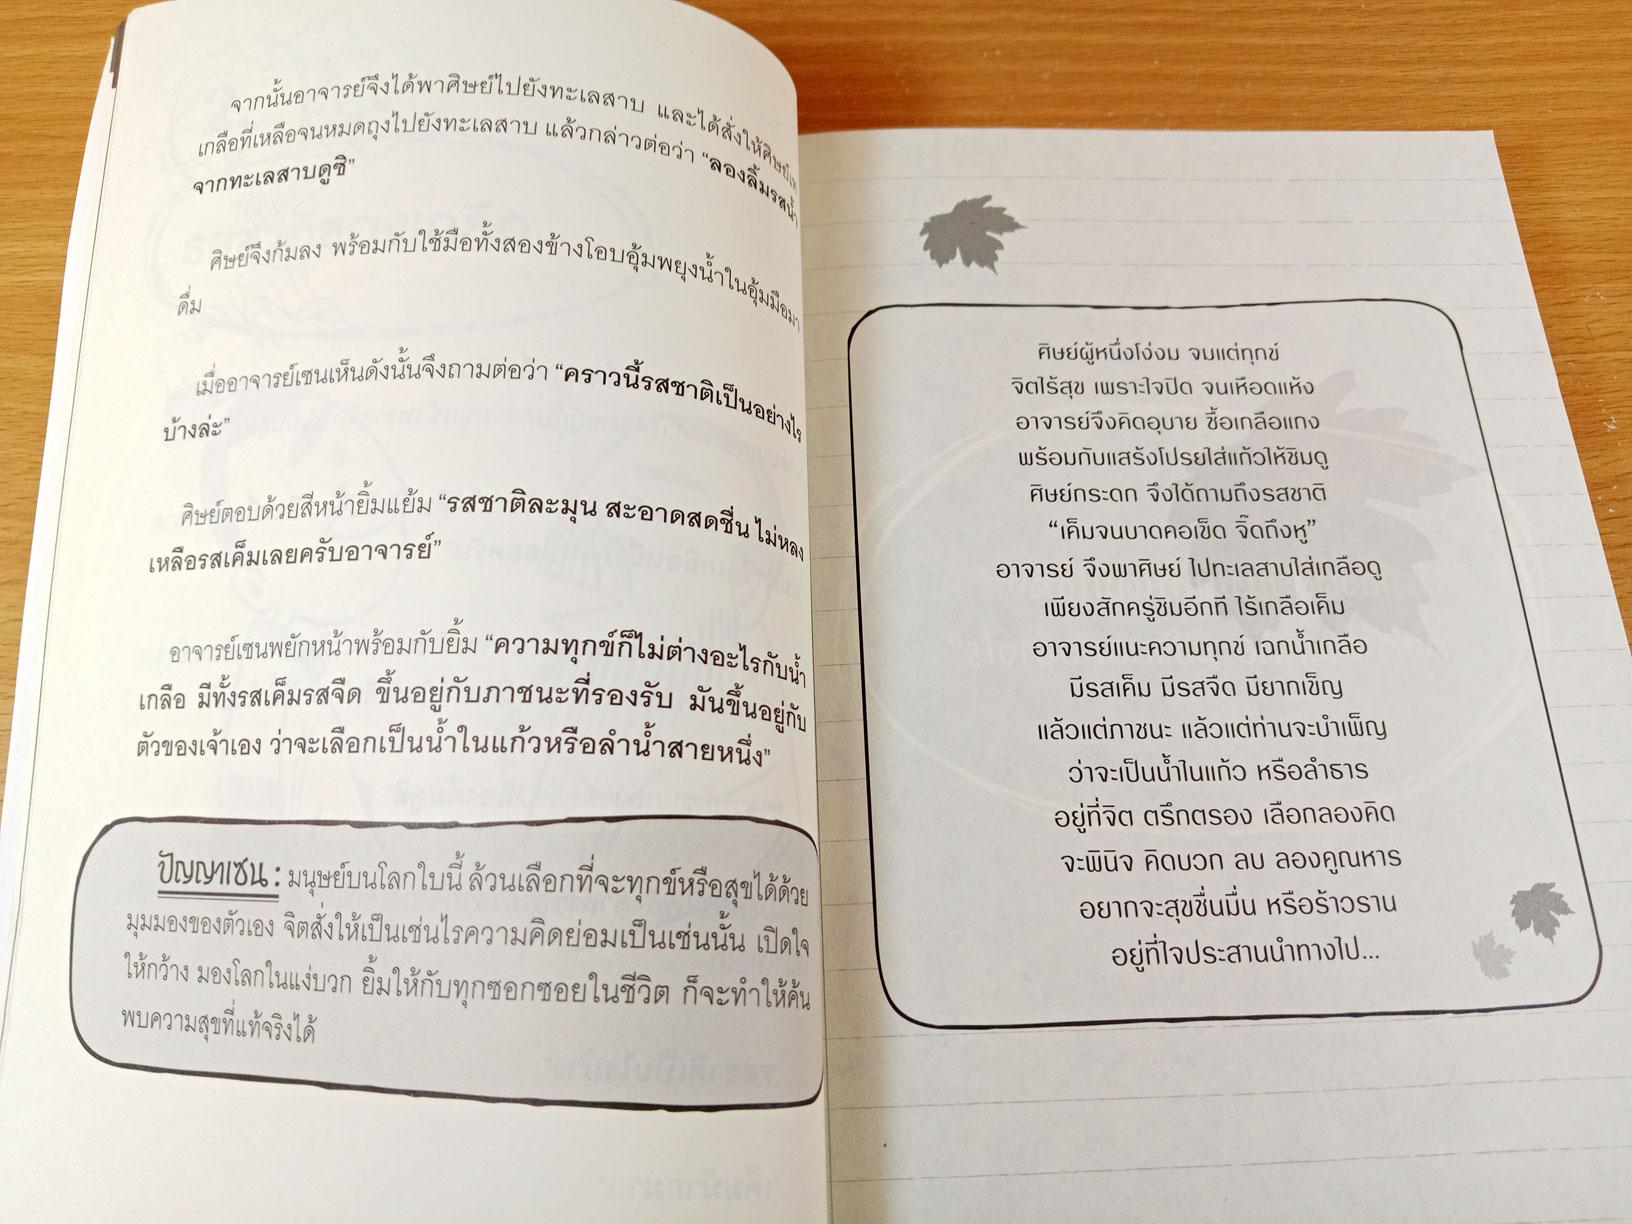 จากนั้นอาจารย์จึงได้พาศิษย์ไปยังทะเลสาบ และได้สั่งให้ศิษย์เท
เกลือที่เหลือจนหมดถุงไปยังทะเลสาบ แล้วกล่าวต่อว่า “ลองลิ้มรสน้ำ
จากทะเลสาบดูซิ”
ศิษย์จึงก้มลง พร้อมกับใช้มือทั้งสองข้างโอบอุ้มพยุงน้ำในอุ้มมือมา
ดื่ม
เมื่ออาจารย์เซนเห็นดังนั้นจึงถามต่อว่า “คราวนี้รสชาติเป็นอย่างไร
บ้างล่ะ”
ศิษย์ตอบด้วยสีหน้ายิ้มแย้ม “รสชาติละมุน สะอาดสดชื่น ไม่หลง
เหลือรสเค็มเลยครับอาจารย์”
อาจารย์เซนพยักหน้าพร้อมกับยิ้ม “ความทุกข์ก็ไม่ต่างอะไรกับน้ำ
เกลือ มีทั้งรสเค็มรสจืด ขึ้นอยู่กับภาชนะที่รองรับ มันขึ้นอยู่กับ
ตัวของเจ้าเอง ว่าจะเลือกเป็นน้ำในแก้วหรือลำน้ำสายหนึ่ง”
ปัญญาเซน : มนุษย์บนโลกใบนี้ ล้วนเลือกที่จะทุกข์หรือสุขได้ด้วย
มุมมองของตัวเอง จิตสั่งให้เป็นเช่นไรความคิดย่อมเป็นเช่นนั้น เปิดใจ
ให้กว้าง มองโลกในแง่บวก ยิ้มให้กับทุกซอกซอยในชีวิต ก็จะทำให้ค้น
พบความสุขที่แท้จริงได้
ศิษย์ผู้หนึ่งโง่งม จมแต่ทุกข์
จิตไร้สุข เพราะใจปิด จนเหือดแห้ง
อาจารย์จึงคิดอุบาย ซื้อเกลือแกง
พร้อมกับแสร้งโปรยใส่แก้วให้ชิมดู
ศิษย์กระดก จึงได้ถามถึงรสชาติ
“เค็มจนบาดคอเช็ด จิ๊ดถึงหู”
อาจารย์ จึงพาศิษย์ ไปทะเลสาบใส่เกลือดู
เพียงสักครู่ชิมอีกที ไร้เกลือเค็ม
อาจารย์แนะความทุกข์ เฉกน้ำเกลือ
มีรสเค็ม มีรสจืด มียากเข็ญ
แล้วแต่ภาชนะ แล้วแต่ท่านจะบำเพ็ญ
ว่าจะเป็นน้ำในแก้ว หรือลำธาร
อยู่ที่จิต ตรึกตรอง เลือกลองคิด
จะพินิจ คิดบวก ลบ ลองคูณหาร
อยากจะสุขชื่นมื่น หรือร้าวราน
อยู่ที่ใจประสานนำทางไป...